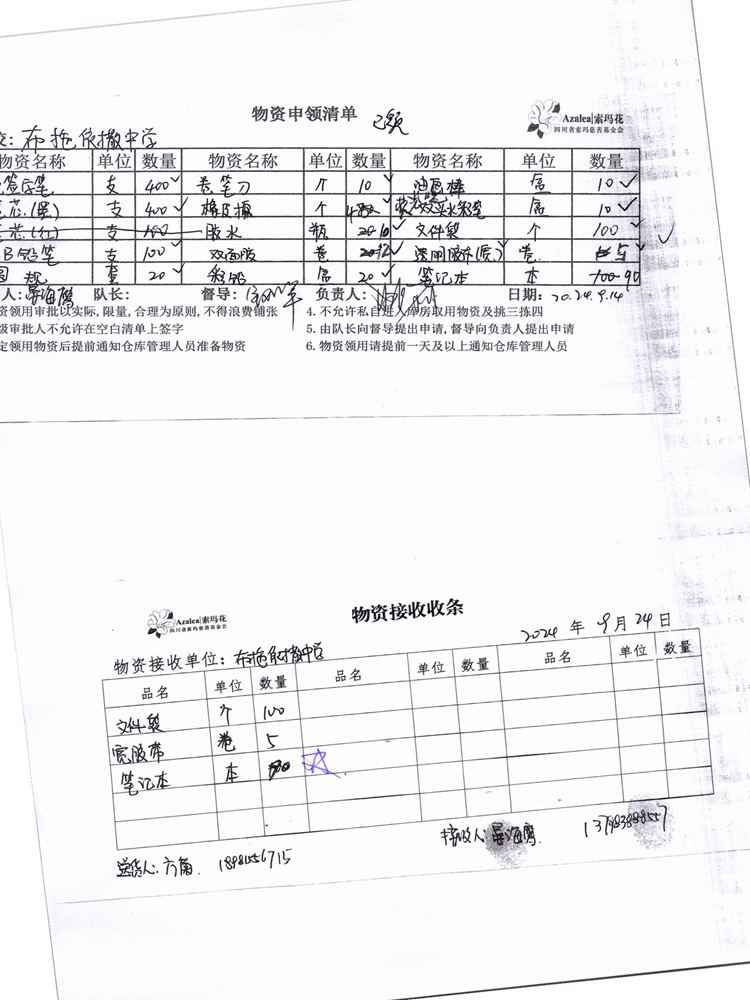 物资申领清单 已领
Azalea|索玛花
四川省索玛慈善基金会
: 布拖依撒中学
物资名称 单位 数量 物资名称 单位 数量 物资名称 单位 数量
签字笔 支 400 卷笔刀 个 10 油画棒 盒 10
芯(黑) 支 400 橡皮擦 个 水彩笔 盒 10
芯(红) 支 100 胶水 瓶 20 10 文件袋 个 100
B铅笔 支 100 双面胶 卷 透明胶布(宽) 卷 5
圆规 套 20 彩铅 盒 20 笔记本 本 100 90
人: 晏海鹰 队长: 督导: 负责人: 日期: 2024.9.14
资领用审批以实际, 限量, 合理为原则, 不得浪费铺张 4. 不允许私自进入库房取用物资及挑三拣四
级审批人不允许在空白清单上签字 5. 由队长向督导提出申请, 督导向负责人提出申请
定领用物资后提前通知仓库管理人员准备物资 6. 物资领用请提前一天及以上通知仓库管理人员
Azalea|索玛花
四川省索玛慈善基金会
物资接收收条
2024 年 9 月 24 日
物资接收单位: 布拖依撒中学
品名 单位 数量 品名 单位 数量 品名 单位 数量
文件袋 个 100
宽胶带 卷 5
笔记本 本 90
送货人: 方角. 1898156715
接收人: 晏海鹰 13798388557